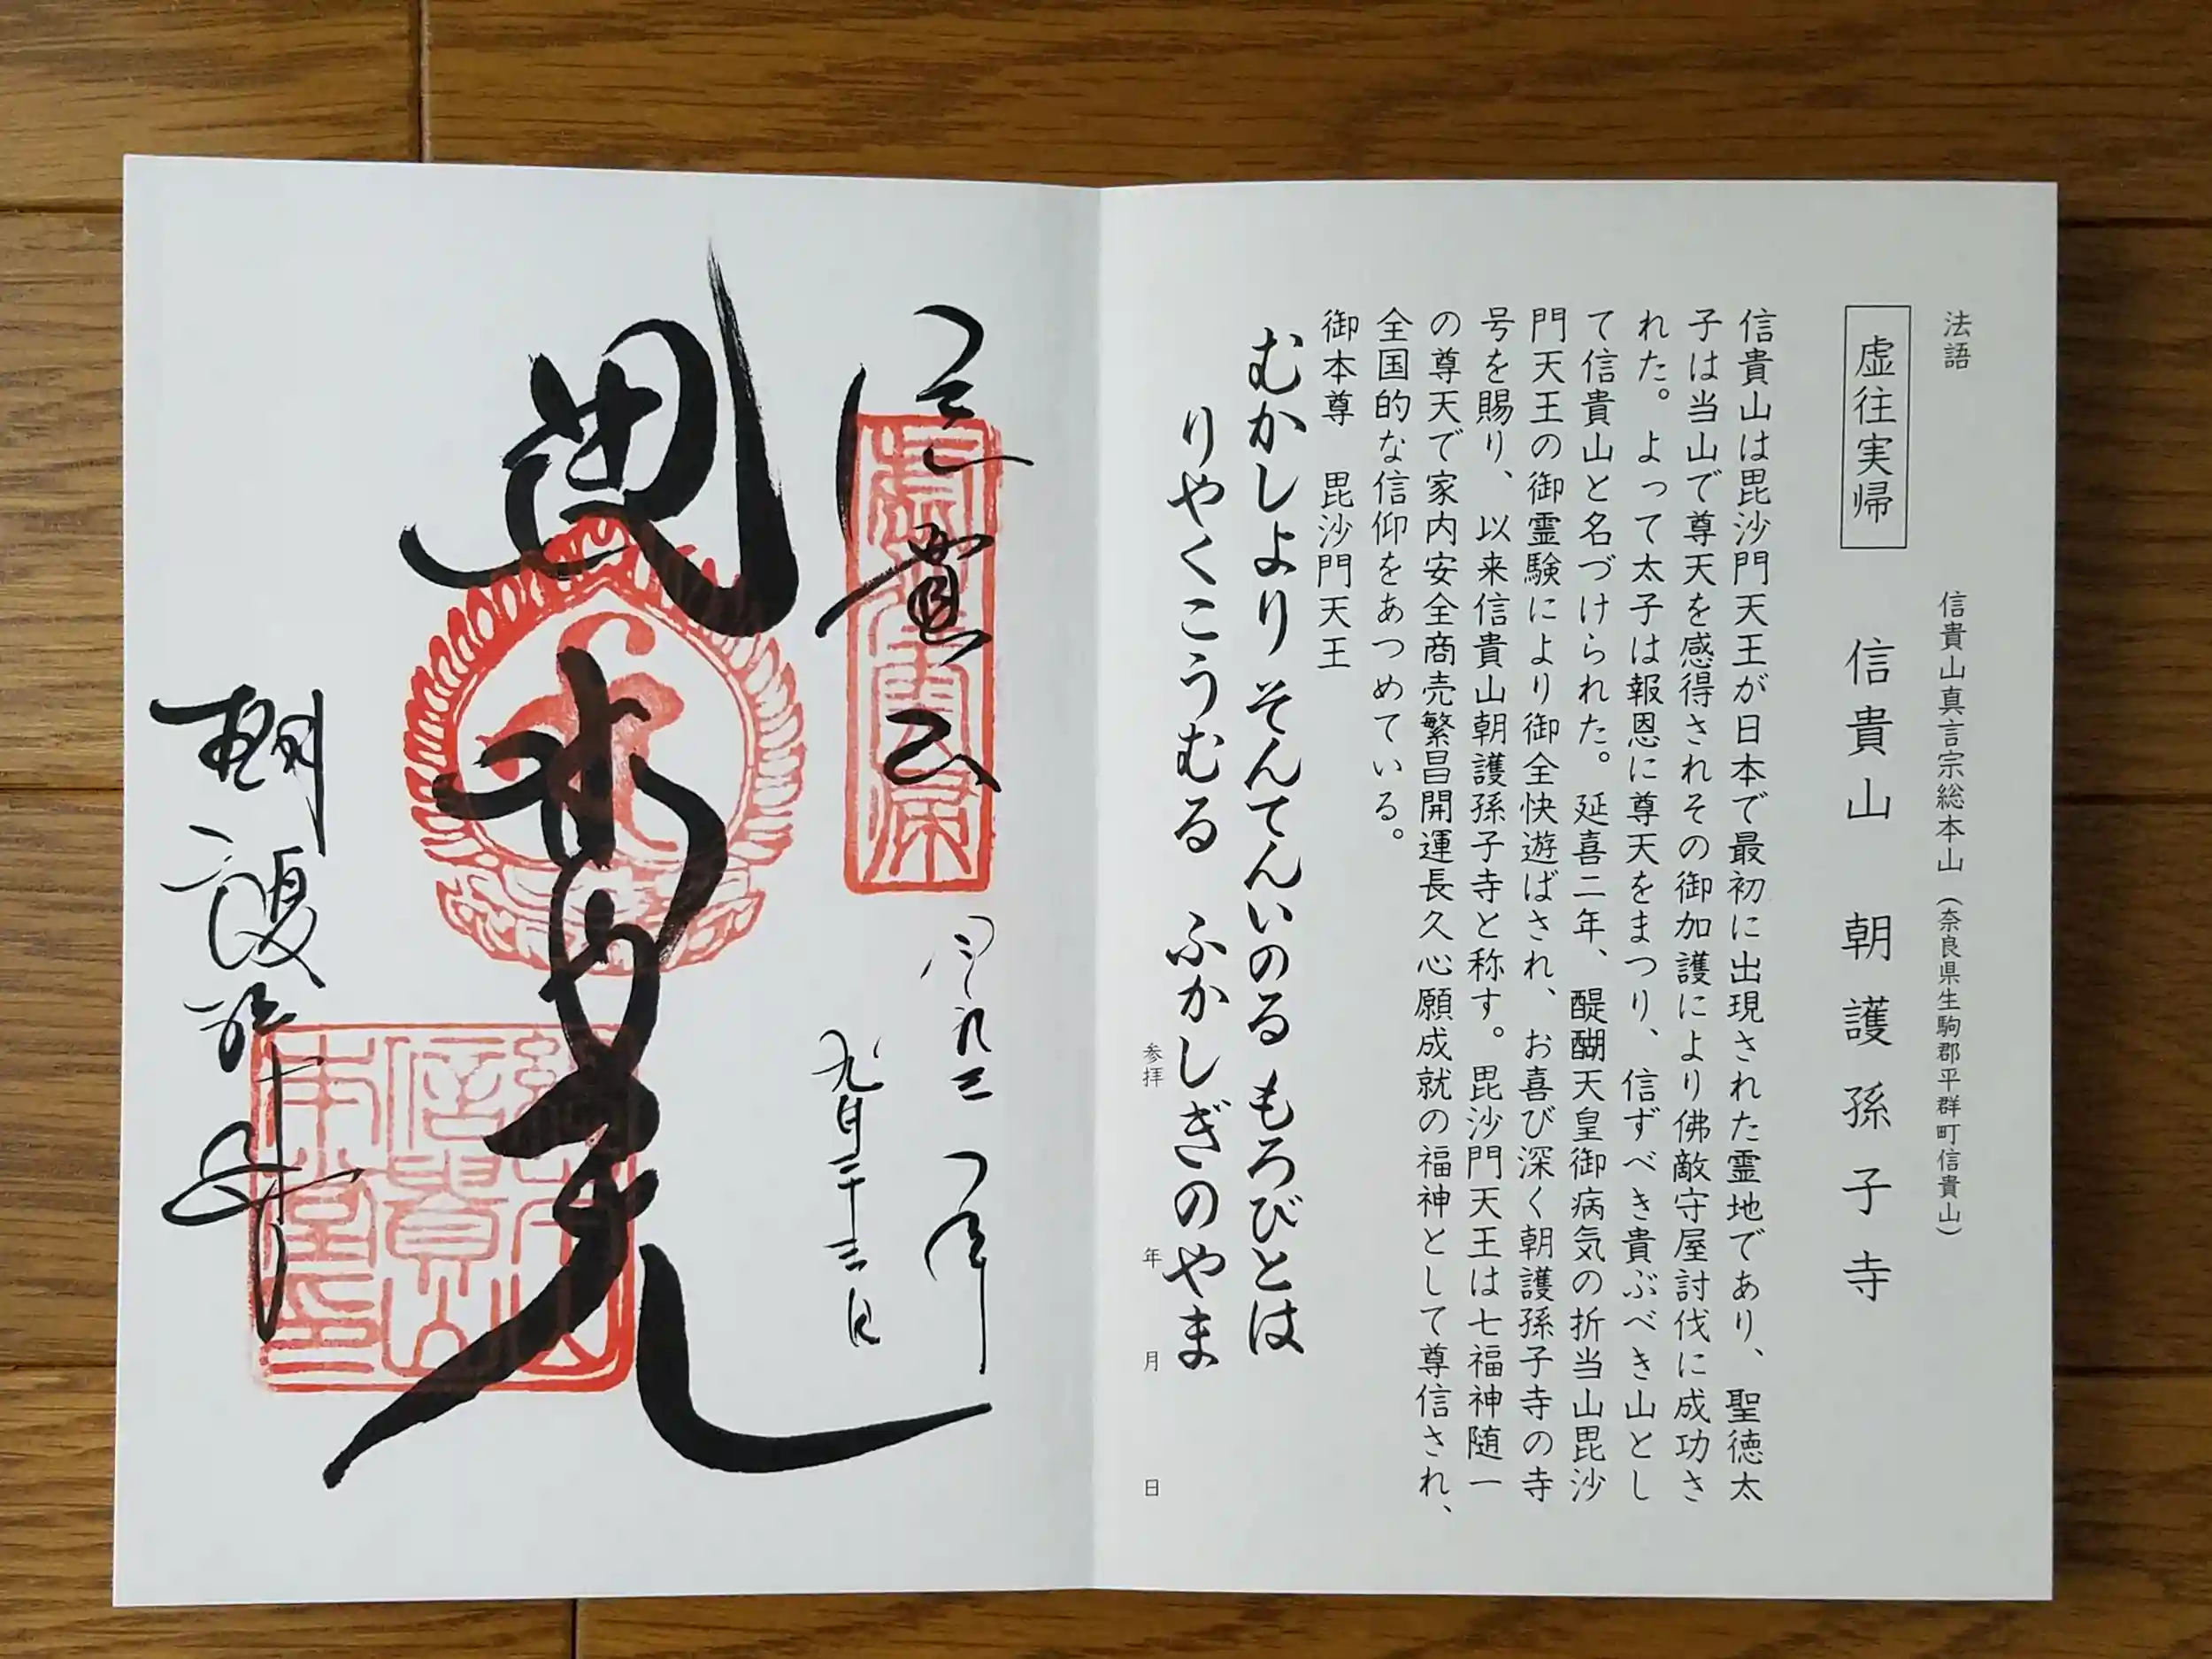 法語
信貴山真言宗総本山（奈良県生駒郡平群町信貴山）
虚往実帰
信貴山　朝護孫子寺
信貴山は毘沙門天王が日本で最初に出現された霊地であり、聖徳太
子は当山で尊天を感得されその御加護により佛敵守屋討伐に成功さ
れた。よって太子は報恩に尊天をまつり、信ずべき貴ぶべき山とし
て信貴山と名づけられた。延喜二年、醍醐天皇御病気の折当山毘沙
門天王の御霊験により御全快遊ばされ、お喜び深く朝護孫子寺の寺
号を賜り、以来信貴山朝護孫子寺と称す。毘沙門天王は七福神随一
の尊天で家内安全商売繁昌開運長久心願成就の福神として尊信され、
全国的な信仰をあつめている。
御本尊　毘沙門天王
むかしより そんてんいのる もろびとは
りやくこうむる ふかしぎのやま
参拝　年　月　日
信貴山
九月二十三日
毘沙門天
朝護孫子寺